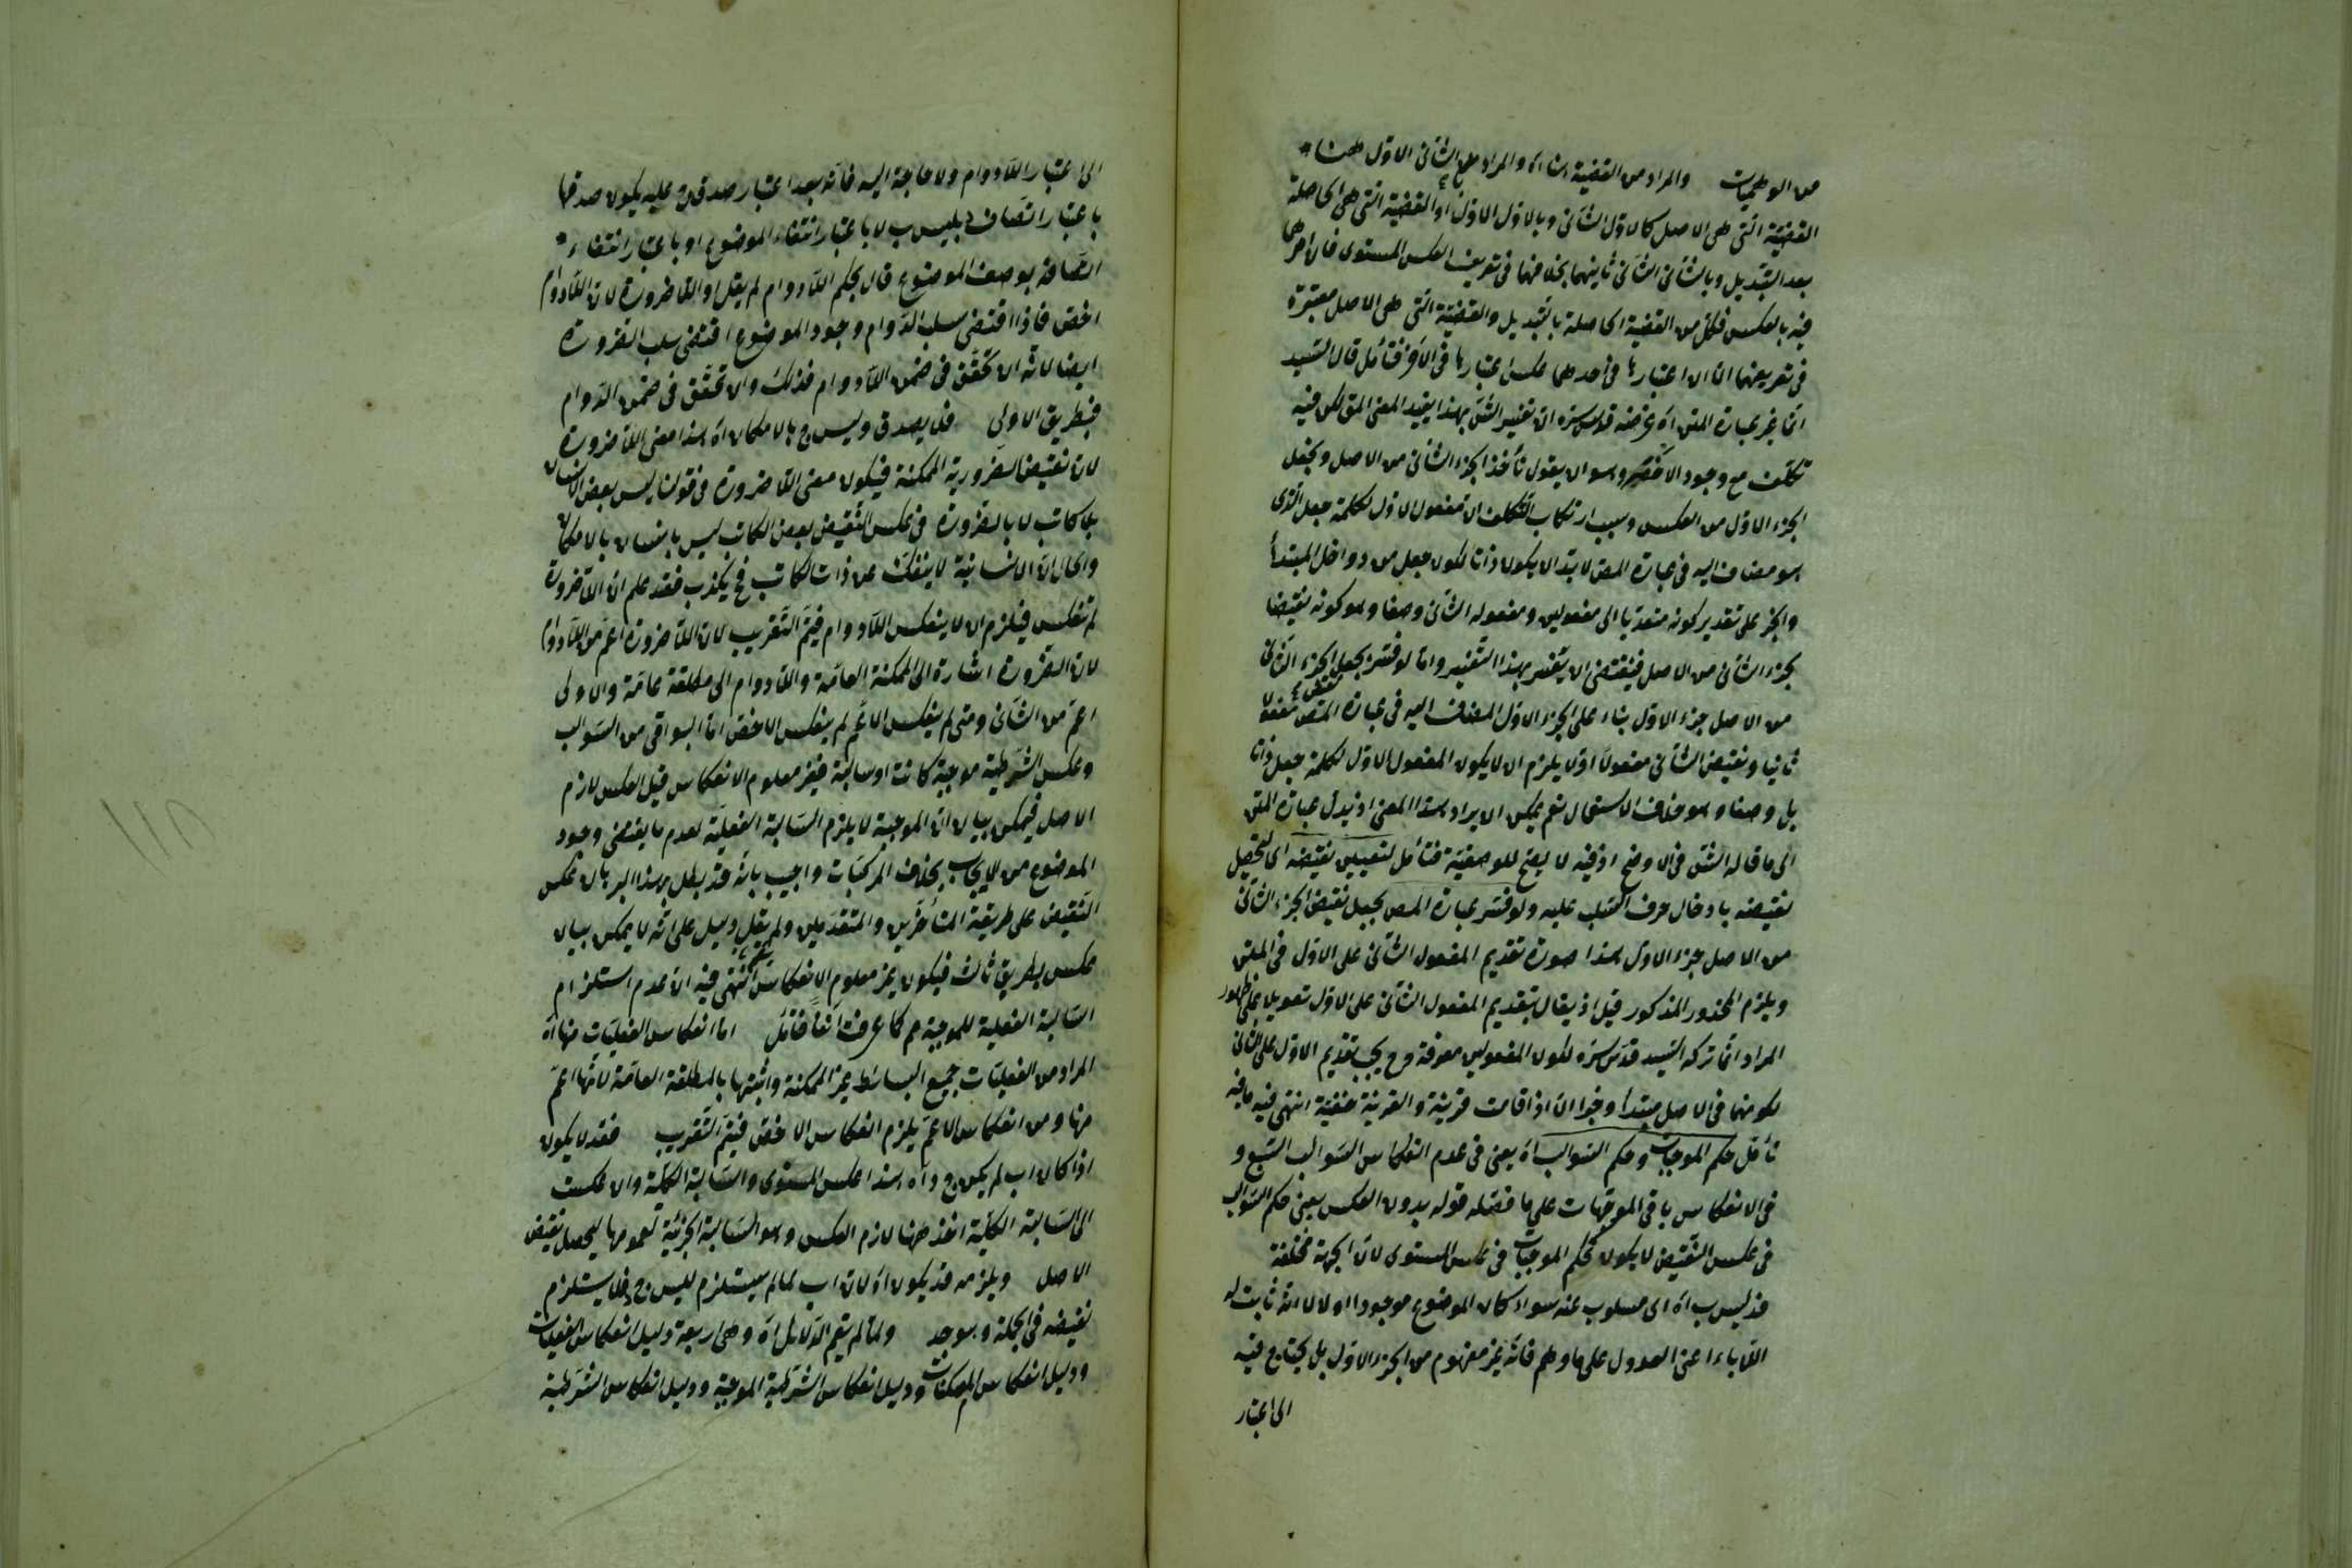 من الوهميات والمراد من القضية اه والمراد من الثانى الاول ههنا
القضية التى هى الاصل كالاول الثانى وبالاول الاول القضية التى هى الحاصلة
بعد التبديل وبالثانى الثانى ثانيهما بخلافها فى تعريف العكس المستوى فالامر هما
فيه بالعكس فكل من القضية الحاصلة بالتبديل والقضية التى هى الاصل معتبرة
فى تعريفهما الا ان اعتبارها فى احدهما عكس اعتبارها فى الآخر فتأمل قال السيد
انما غير عبارة المتن اه غرضه قدس سره ان تفسير الش بهذا يفيد المعنى المق لكن فيه
تكلف مع وجود الاخصر وهو ان يقول نأخذ الجزء الثانى من الاصل ونجعل
الجزء الاول من العكس وسبب ارتكاب التكلف ان مفعول الاول لكلمة جعل الذى
هو مضاف اليه فى عبارة المص لا بد ان يكون ذاتا لكون جعل من دواخل المبتدأ
والخبر على تقدير كونه متعديا الى مفعولين ومفعوله الثانى وصفا وهو كونه نقيضا
لجزء الثانى من الاصل فيقتضى ان يفسر بهذا التفسير واما لو فسر بجعل الجزء الثانى
من الاصل جزء الاول بناء على الجزء الاول المضاف اليه فى عبارة المص مفعولا
ثانيا ونقيض الثانى مفعولا اولا يلزم ان لا يكون المفعول الاول لكلمة جعل ذاتا
بل وصفا وهو خلاف الاستعمال نعم يمكن الايراد بهذا المعنى اذ تبدل عبارة المتن
الى ما قاله الش فى الاوضح اذ فيه لا يصح للوصفية فتأمل لتعيين نقيضه اى لتحصيل
نقيضه بادخال حرف السلب عليه ولو فسر عبارة المص بجعل نقيض الجزء الثانى
من الاصل جزء الاول هذا صورة تقديم المفعول الثانى على الاول فى المتن
ويلزم المحذور المذكور قيل اذ يقال بتقديم المفعول الثانى على الاول تعويلا على ظهور
المراد انما تركه السيد قدس سره لكون المفعولين معرفة وح يجب تقديم الاول على الثانى
لكونهما فى الاصل مبتدأ وخبرا الا اذا قامت قرينة والقرينة خفية انتهى فيه ما فيه
تأمل حكم الموجبات وحكم السوالب اه يعنى فى عدم انعكاس السوالب السبع و
فى الانعكاس باقى الموجهات على ما فصله قوله بدون العكس يعنى حكم السوالب
فى عكس النقيض لا يكون كحكم الموجبات فى عكس المستوى لان الجهة مختلفة
فد ليس ب اه اى مسلوب عنه سواء كان الموضوع موجودا او لا لا انه ثابت له
اللاباء اعنى العدول على ما وهم فانه غير مفهوم من الجزء الاول بل يحتاج فيه
الى اعتبار
الى اعتبار اللادوام ولا حاجة اليه فانه بعد اعتبار صدق ج عليه يكون صدقها
باعتبار اتصاف د بليس ب لا باعتبار انتفاء الموضوع او باعتبار انتفاء
اتصافه بوصف الموضوع قال بحكم اللادوام لم يقل او اللاضرورة لان اللادوام
اخص فاذا اقتضى سلب الدوام وجود الموضوع اقتضى سلب الضرورة
ايضا لانه ان تحقق فى ضمن اللادوام فذلك وان تحقق فى ضمن الدوام
فبطريق الاولى فلا يصدق وليس ج بالامكان اه هذا معنى اللاضرورة
لان نقيض الضرورية الممكنة فيكون معنى اللاضرورة فى قولنا ليس بعض الانسان
بلا كاتب لا بالضرورة فى عكس النقيض بعض الكاتب ليس بانسان بالامكان
والحال ان الانسانية لا ينفك عن ذات الكاتب فح يكذب فقد علم ان اللاضرورة
لم تنعكس فيلزم ان لا ينعكس اللادوام فيتم التقريب لان اللاضرورة اعم من اللادوام
لان الضرورة اشارة الى الممكنة العامة واللادوام الى مطلقة عامة والاولى
اعم من الثانى ومتى لم ينعكس الاعم لم ينعكس الاخص اما البواقى من السوالب
وعكس الشرطية موجبة كانت او سالبة فغير معلوم الانعكاس قيل العكس لازم
الاصل فيمكن بيان ان الموجبة لا يلزم السالبة الفعلية لعدم ما يقتضى وجود
الموضوع من الايجاب بخلاف المركبات واجيب بانه قد بطل بهذا البرهان عكس
النقيض على طريقة المتأخرين والمتقدمين ولم يقل دليل على انه لا يمكن بيان
عكس بطريق ثالث فيكون غير معلوم الانعكاس انتهى فيه ان عدم استلزام
السالبة الفعلية للموجبة م كما عرفت آنفا فتأمل اما انعكاس الفعليات منها اه
المراد من الفعليات جميع البسائط غير الممكنة واثبتها بالمطلقة العامة لانها اعم
منها ومن انعكاس الاعم يلزم انعكاس الاخص فيتم التقريب فقد لا يكون
اذا كان اب لم يكن ج د اه هذا عكس المستوى والسالبة الكلية وان عكست
الى السالبة الكلية اخذ ههنا لازم العكس وهو السالبة الجزئية لعمومها ليحصل نقيض
الاصل ويلزمه قد يكون اه لان اب لما لم يستلزم ليس ج د فلا يستلزم
نقيضه فى الجملة وهو جد ولما لم يتم الدلائل اه وهى اربعة دليل انعكاس الفعليات
ودليل انعكاس الممكنات ودليل انعكاس الشرطية الموجبة ودليل انعكاس الشرطية